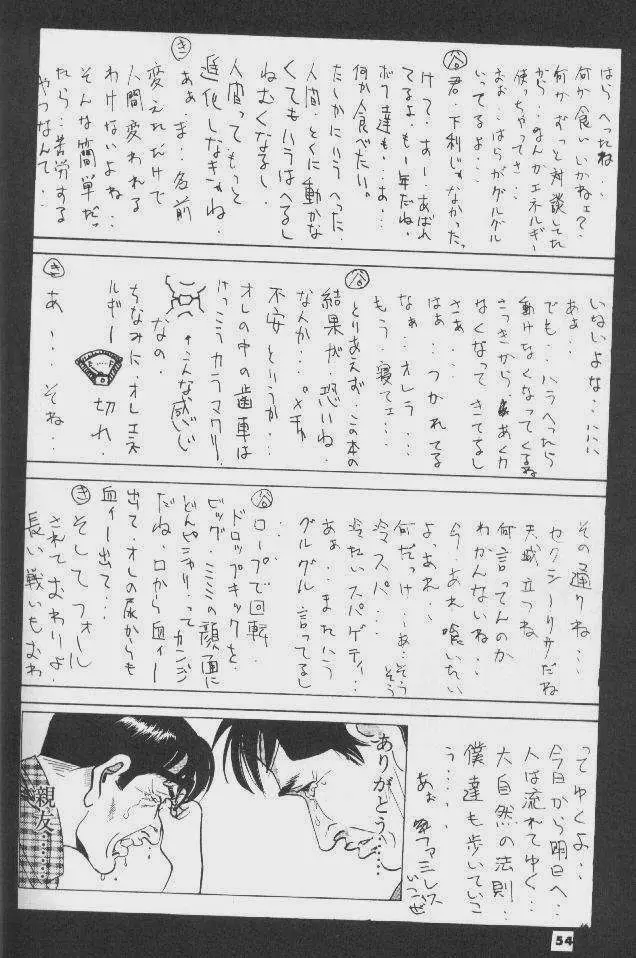 はらへったね…
何か食いにいかねェ?…
何か、ずっと対談してた
から…なんかエネルギー
使っちゃってさ…
おぉ…はらがグルグル
いってるよ…
谷 君、下利じゃなかったっ
けて…すー、あばれ
てるよ、もー年だね、
ボク達も…あー…
何か食べたい。
たしかにハラへった、
人間、とくに動かな
くてもハラはへるし
ねむくなるし、
人間って、もっと
進化しなきゃね、
き あぁ…ま…名前
変えただけで
人間変われる
わけないよね…
そんな簡単だっ
たら…苦労する
やつなんて…
いないよな…ハハハ
あぁ…
でも…ハラへったら
動けなくなってくるね
さっきから あく力
なくなってきてるし
さぁ…
はぁ…つかれてる
なぁ…オレラ…
もう…寝てェ…
谷 とりあえず、この本の
結果が、恐いね、
なんか…
不安というか…
オレの中の歯車は
けっこうカラマワリ、
↑こんな感じ
なの、
ちなみに、オレ エネ
ルギー 切れ、
き あー…そね…
その通りね…
セクシーリサだね
天城立つね
何言ってんのか
わかんないね…
今、あれ喰いたい
よ、あれ…
何だっけ…あ…そう そう
冷スパ…
冷たいスパゲティ…
あぁ…またハラ
グルグル言ってるし
…
谷 ロープで回転、
ドロップキックを、
ビッグ・ミミミの顔面に
どんピシャリ…ってカンジ
だね、口から血ィー
出て、オレの尿からも
血ィー出て…
き そしてフォール
されておわりよ、
長い戦いもおわ
ってゆくよ…
今日から明日へ…
人は流れてゆく…
大自然の法則…
僕達も歩いていこ
う…っ
あぉ、ファミレス
いこぜ
ありがとう……
親友………
54